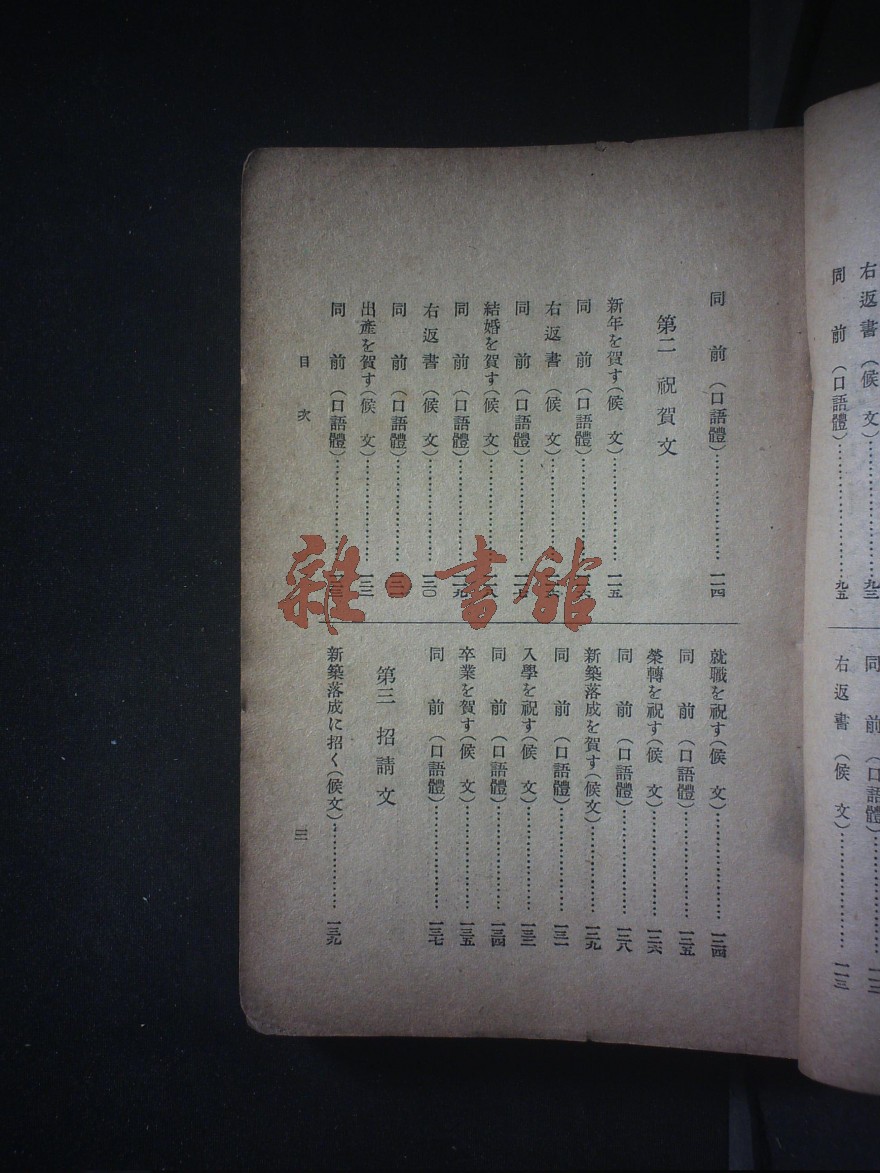 右返書(候 文)………………九三
同 前(口語體)………………九五
同 前(口語體)………………一一二
右返書(候 文)………………一一三
同 前(口語體)………………一一四
第二 祝賀文
新年を賀す(候 文)………………一一五
同 前(口語體)………………
右返書(候 文)………………
同 前(口語體)………………一一七
結婚を賀す(候 文)………………一一八
同 前(口語體)………………一一九
右返書(候 文)………………一二〇
同 前(口語體)………………
出產を賀す(候 文)………………一二二
同 前(口語體)………………
就職を祝す(候 文)………………一二四
同 前(口語體)………………一二五
榮轉を祝す(候 文)………………一二六
同 前(口語體)………………一二八
新築落成を賀す(候文)………………一二九
同 前(口語體)………………一三一
入學を祝す(候 文)………………一三三
同 前(口語體)………………一三四
卒業を賀す(候 文)………………一三五
同 前(口語體)………………一三七
第三 招請文
新築落成に招く(候文)………………一三九
目次
三
雜·書館